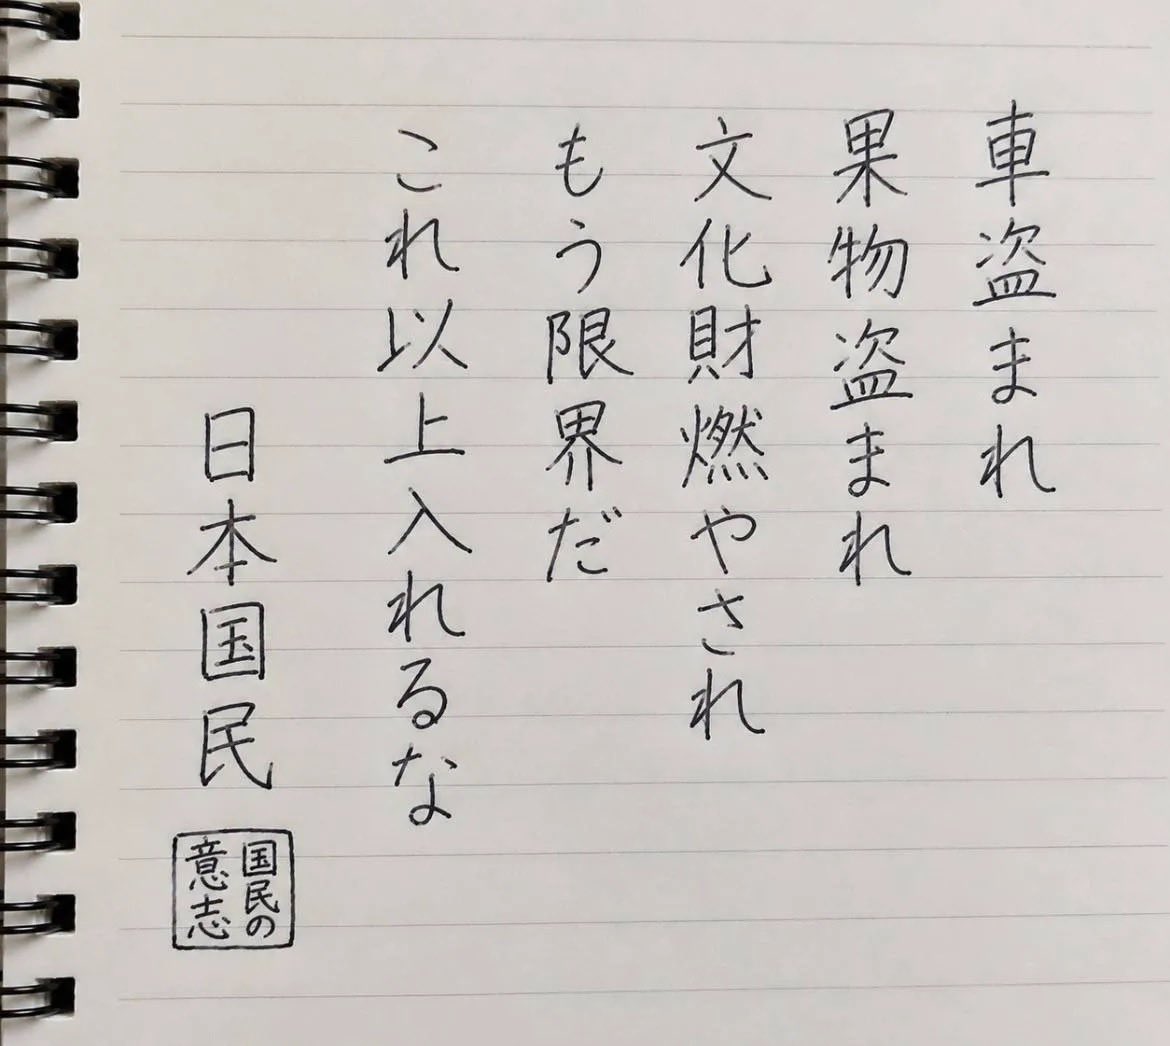 車盗まれ
果物盗まれ
文化財燃やされ
もう限界だ
これ以上入れるな
日本国民
国民の
意志